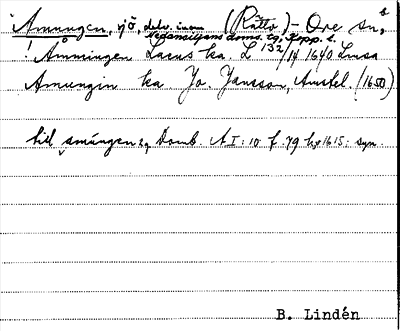 Amungen, sjö, delv. inom (Rättv)-Ore sn,
Nedansiljans doms. , Kopp. l.
! Åmmingen Lacus ka L 132/14 1640 Lmsa
Amungin ka Jo. Jansson, Amstel. (1650)
till amúngen, Domb. A I:10 f. 79 hs 1615: syn.
B. Lindén